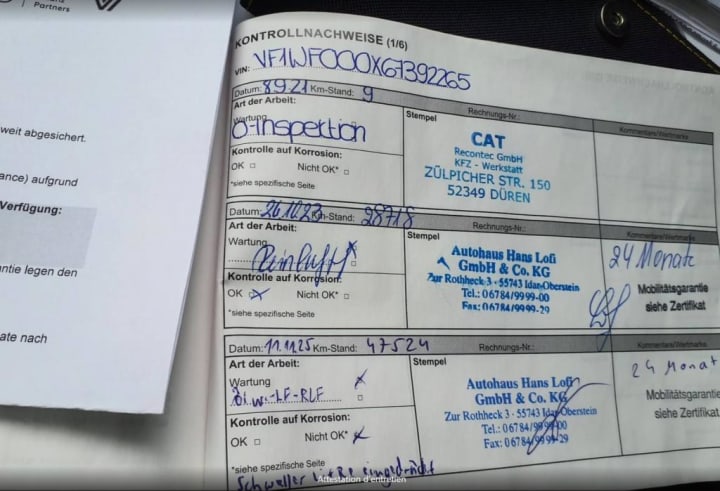 Partners
weit abgesichert.
ance) aufgrund
Verfügung:
ntie legen den
ate nach
KONTROLLNACHWEISE (1/6)
VIN: VF1WF000X67392265
Datum: 8.9.21 Km-Stand: 9
Art der Arbeit:
Wartung
0-Inspektion
Kontrolle auf Korrosion:
OK □ Nicht OK* □
*siehe spezifische Seite
Stempel
Rechnungs-Nr.:
CAT
Recontec GmbH
KFZ - Werkstatt
ZÜLPICHER STR. 150
52349 DÜREN
Kommentare/Wertmarke
Datum: 26.10.23 Km-Stand: 28718
Art der Arbeit:
Wartung
Kontrolle auf Korrosion:
OK Nicht OK* □
*siehe spezifische Seite
Stempel
Rechnungs-Nr.:
Autohaus Hans Lofi
GmbH & Co. KG
Zur Rothheck 3 · 55743 Idar-Oberstein
Tel.: 06784/9999-00
Fax: 06784/9999-29
Kommentare/Wertmarke
24 Monate
Mobilitätsgarantie
siehe Zertifikat
Datum: 11.11.25 Km-Stand: 47524
Art der Arbeit:
Wartung
Kontrolle auf Korrosion:
OK □ Nicht OK*
*siehe spezifische Seite
Schweller eingedrückt
Stempel
Rechnungs-Nr.:
Autohaus Hans Lofi
GmbH & Co. KG
Zur Rothheck 3 · 55743 Idar-Oberstein
Tel.: 06784/9999-00
Fax: 06784/9999-29
Kommentare/Wertmarke
24 Monat
Mobilitätsgarantie
siehe Zertifikat
Attestation d'entretien